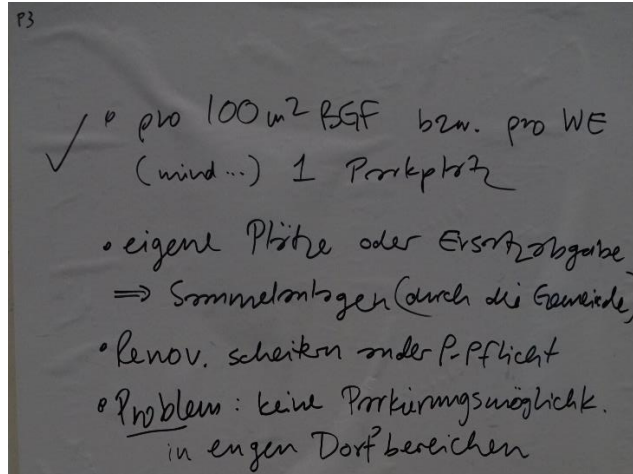 P3
• pro 100 m² BGF bzw. pro WE
(mind...) 1 Parkplatz
• eigene Plätze oder Ersatzabgabe
⇒ Sammelanlagen (durch die Gemeinde)
• Renov. scheitern an der P-Pflicht
• Problem: keine Parkierungsmöglichk.
in engen Dorfbereichen